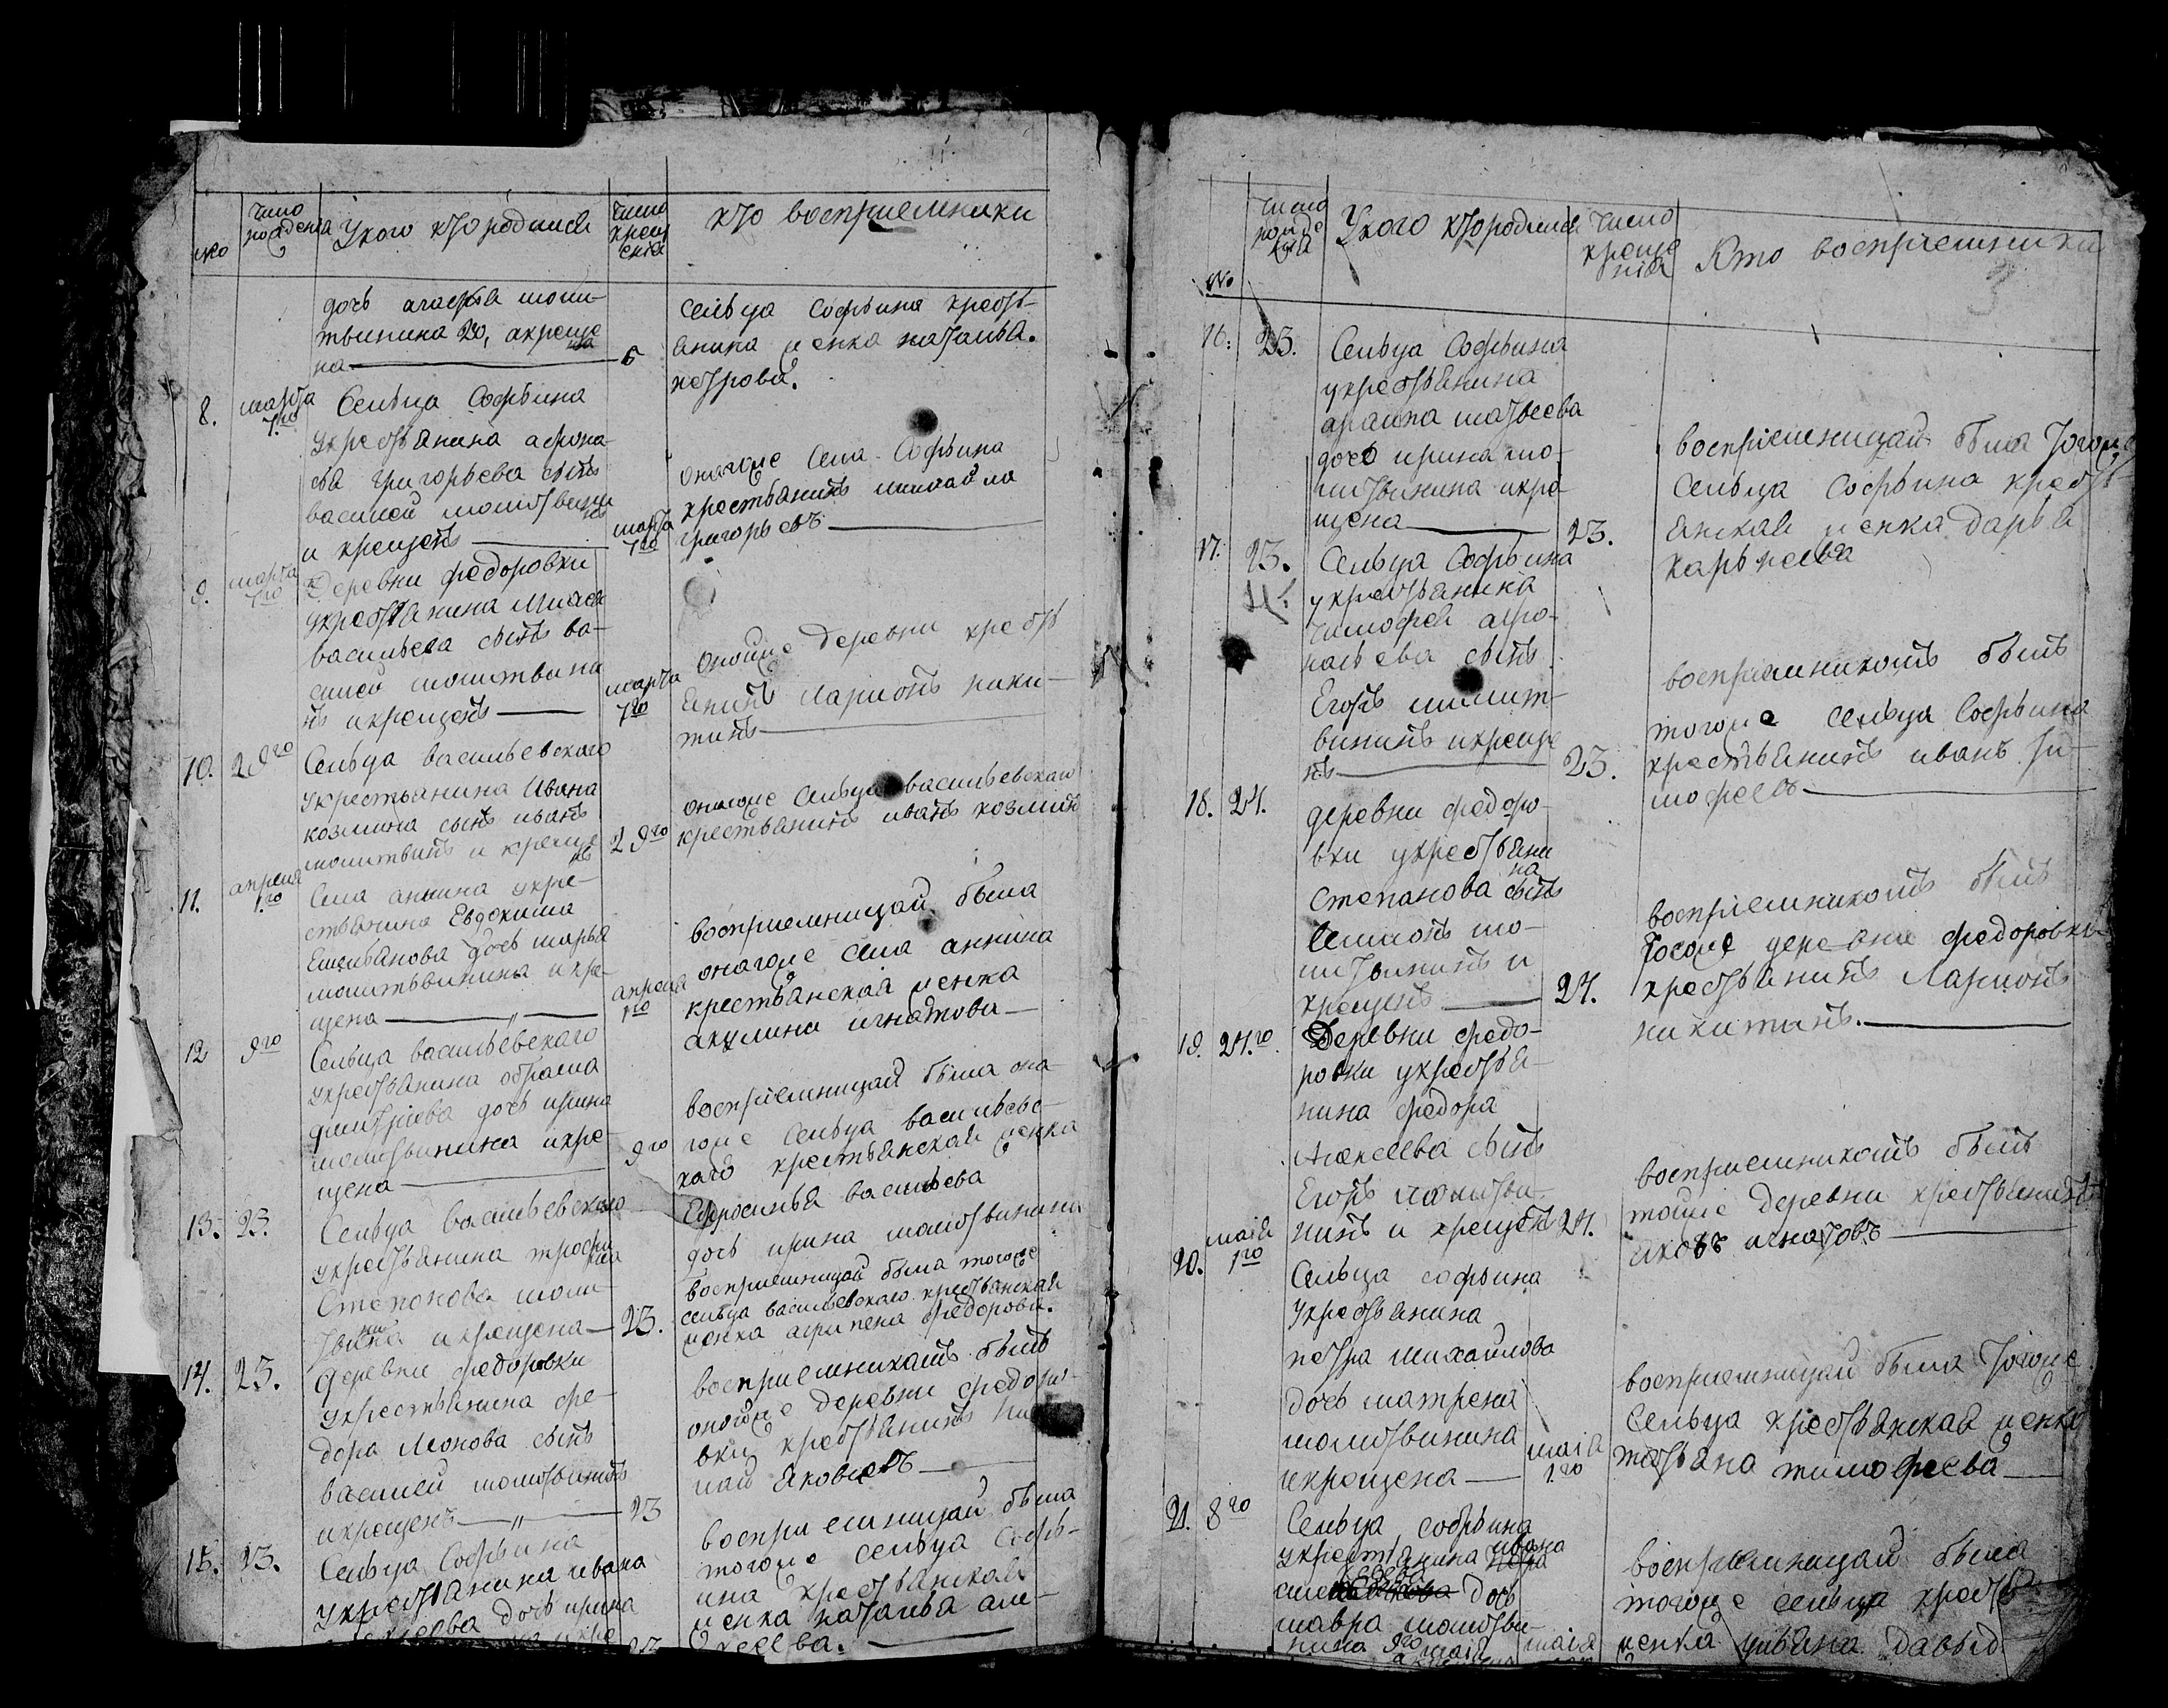 №
число рождения
Укого кто родился
число крещения
кто восприемники
дочь агафья моли-
твинина 20, акреще
на
6
сельца Софьина крестья-
анина женка наталья.
петрова.
8.
марта 7го
Сельца Софьина
укрестьянина афона-
сья григорьева сынъ
василей молитвинъ
и крещенъ
марта 7го
онагоже села Софьина
крестьянинъ михайла
григорьевъ
9.
марта 7го
Деревни федоровки
укрестьянина
васильева сынъ ва-
силей молитвина
нъ икрещенъ
марта 7го
онойже деревни кресть
янинъ Ларионъ ники-
тинъ
10.
29го
Сельца васильевскаго
укрестьянина ивана
козмина сынъ иванъ
молитвинъ и креще
нъ
29го
онагоже сельца васильевскаго
крестьянинъ иванъ козминъ
11.
апреля 1го
Села аннина укре-
стьянина Евдокима
Емельянова дочь марья
молитвинина икре-
щена
апреля 1го
восприемницай была
онагоже села аннина
крестьянская женка
акулина игнатова
12
9го
Сельца васильевскаго
укрестьянина абрама
дмитриева дочь ирина
молитвинина икре-
щена
9го
восприемницай была она-
гоже сельца васильевс-
каго крестьянская женка
Ефросинья васильева
13.
23.
Сельца васильевскаго
укрестьянина трофи
ма
Степонова моли-
твинина икрещена
23.
дочь ирина молитвинина
восприемницай была тогоже
сельца васильевскаго крестьянская
женка агрипена федорова.
14.
23.
Деревни федоровки
укрестьянина фе-
дора Леонова сынъ
василей молитвинъ
икрещенъ
23
восприемникамъ былъ
онойже деревни федоро-
вки крестьянинъ ни
лай яковлевъ
15.
23.
Сельца Софьина
укрестьянина ивана
дочь ирина
23
восприемницай была
тогоже сельца Софь-
ина крестьянская
женка наталья але-
ксеева.
№
число рожде
ния
Укого кто родился
число
креще
ния
Кто восприемники
16.
23.
Сельца Софьина
укрестьянина
матвеева
дочь ирина мо-
литвинина икре-
щена
23.
восприемницай была тогоже
сельца Софьина кресть-
янская женка дарья
карпеева
17.
23.
Сельца Софьина
укрестьянина
тимофея афо-
насьева сынъ
Егоръ молит-
винъ икреще
нъ
23.
восприемникомъ былъ
тогоже сельца Софьина
крестьянинъ иванъ ти-
мофеевъ
18.
24.
деревни федоро-
вки укрестьяни
на
степанова сынъ
Семионъ мо-
литвинъ и
крещенъ
24.
восприемникомъ былъ
тоеже деревни федоровки
крестьянинъ Ларионъ
никитинъ.
19.
24го.
Деревни федо-
ровки укрестья-
нина федора
Алексеева сынъ
Егоръ молитви-
нинъ и крещенъ
24.
восприемникомъ былъ
тойже деревни крестьянинъ
яковъ игнатовъ
20.
майя 1го
Сельца софьина
укрестьянина
петра михайлова
дочь матрена
молитвинина
икрещена
майя 1го
восприемницай была тогоже
сельца крестьянская женка
татьяна тимофеева
21.
8го
Сельца софьина
укрестьянина ивана
дочь
мавра молитви-
нина 9го майя
майя
восприемницай была
тогоже сельца кресть
женка ульяна давыд